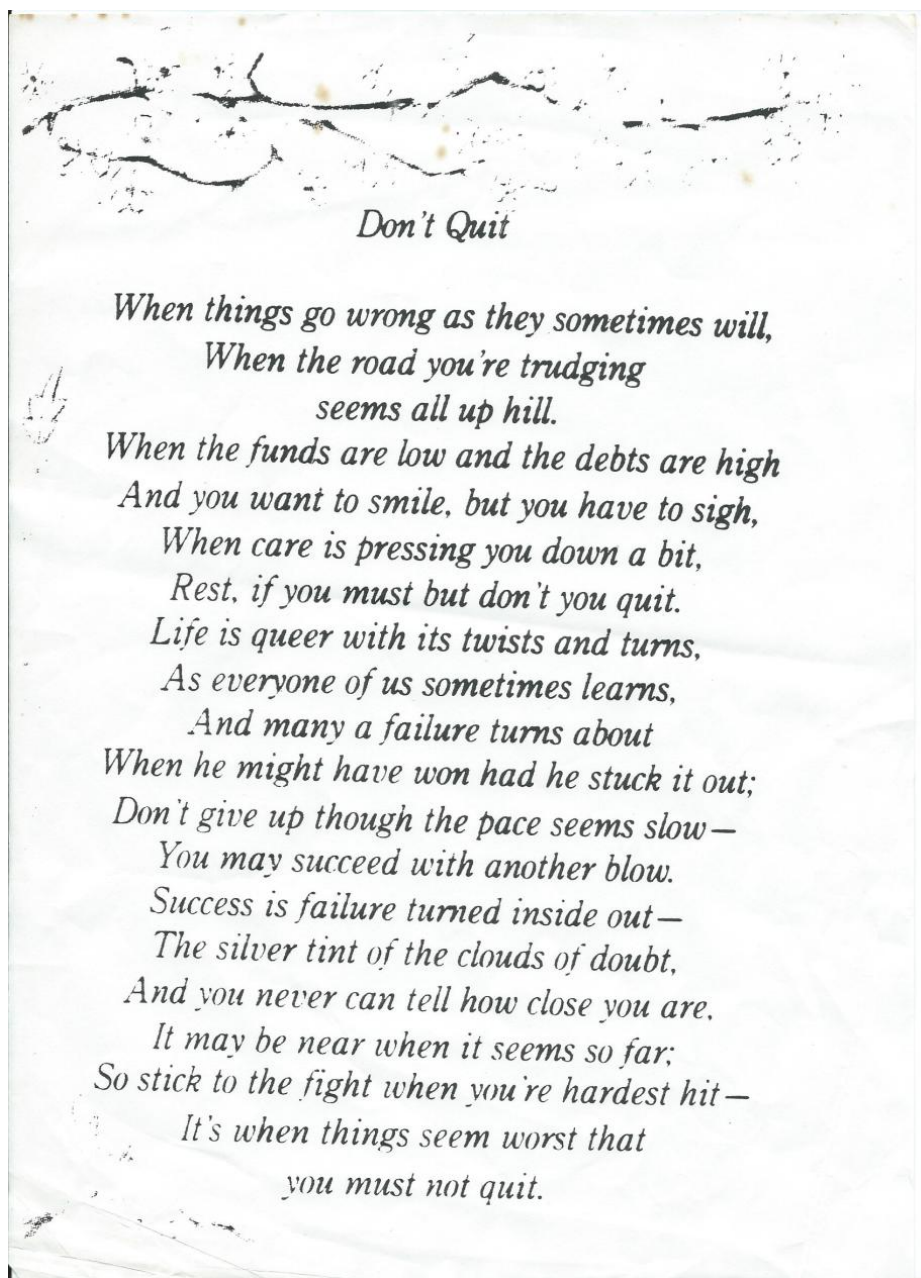 Don't Quit
When things go wrong as they sometimes will,
When the road you're trudging
seems all up hill.
When the funds are low and the debts are high
And you want to smile, but you have to sigh,
When care is pressing you down a bit,
Rest, if you must but don't you quit.
Life is queer with its twists and turns,
As everyone of us sometimes learns,
And many a failure turns about
When he might have won had he stuck it out;
Don't give up though the pace seems slow—
You may succeed with another blow.
Success is failure turned inside out—
The silver tint of the clouds of doubt,
And you never can tell how close you are.
It may be near when it seems so far;
So stick to the fight when you're hardest hit—
It's when things seem worst that
you must not quit.